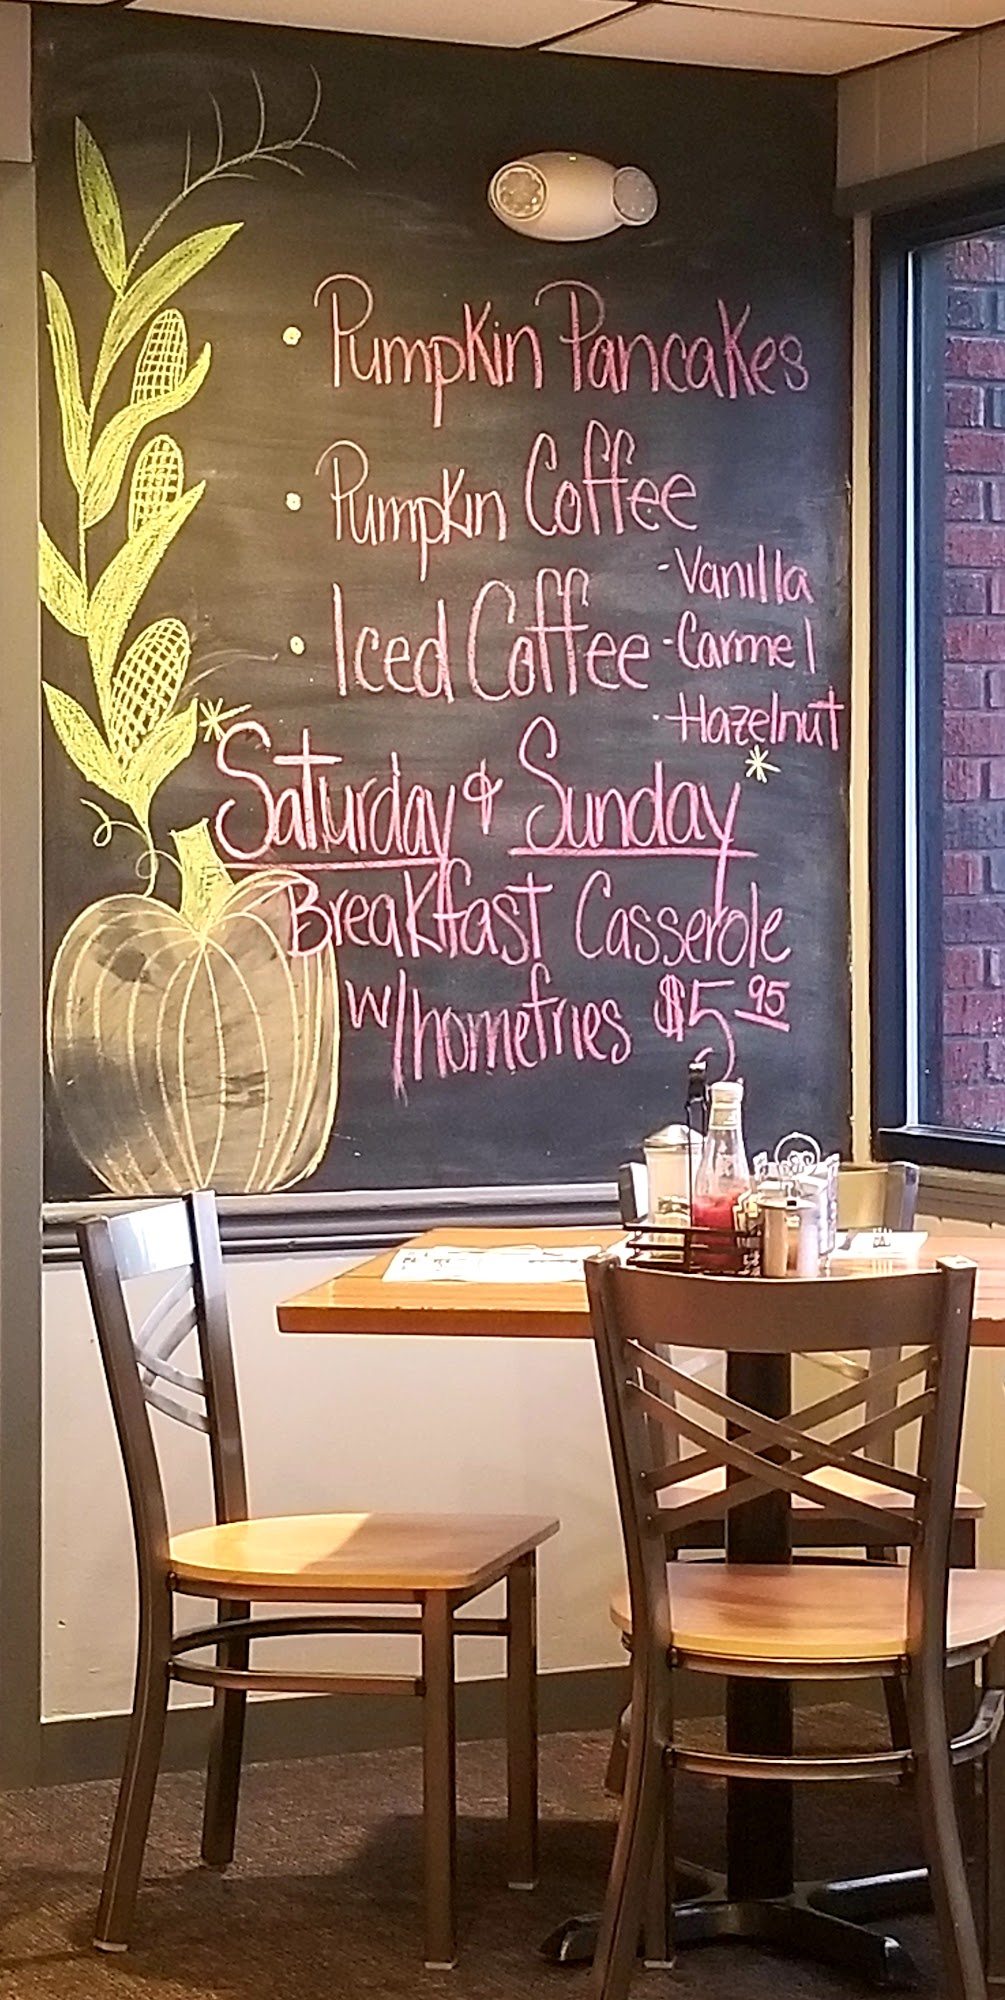 • Pumpkin Pancakes
• Pumpkin Coffee
• Iced Coffee
- Vanilla
- Carmel
- Hazelnut
* Saturday & Sunday *
Breakfast Casserole
w/homefries $5.95